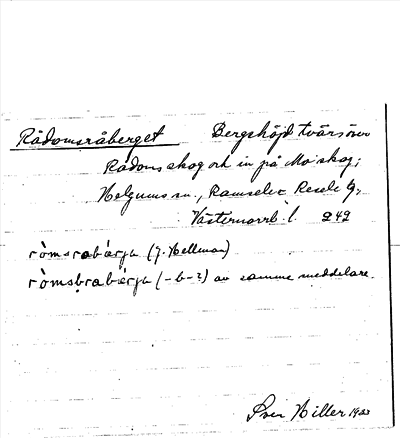 Rådomsråberget Bergshöjd tvärs över
Rådoms skog och in på Mo skog;
Helgums sn., Ramsele o. Resele tg,
Västernorrl. l. 242
ròmsrabárja (J. Hellman)
ròmsbrabárja (-b-?) av samme meddelare.
Sven Hiller 19